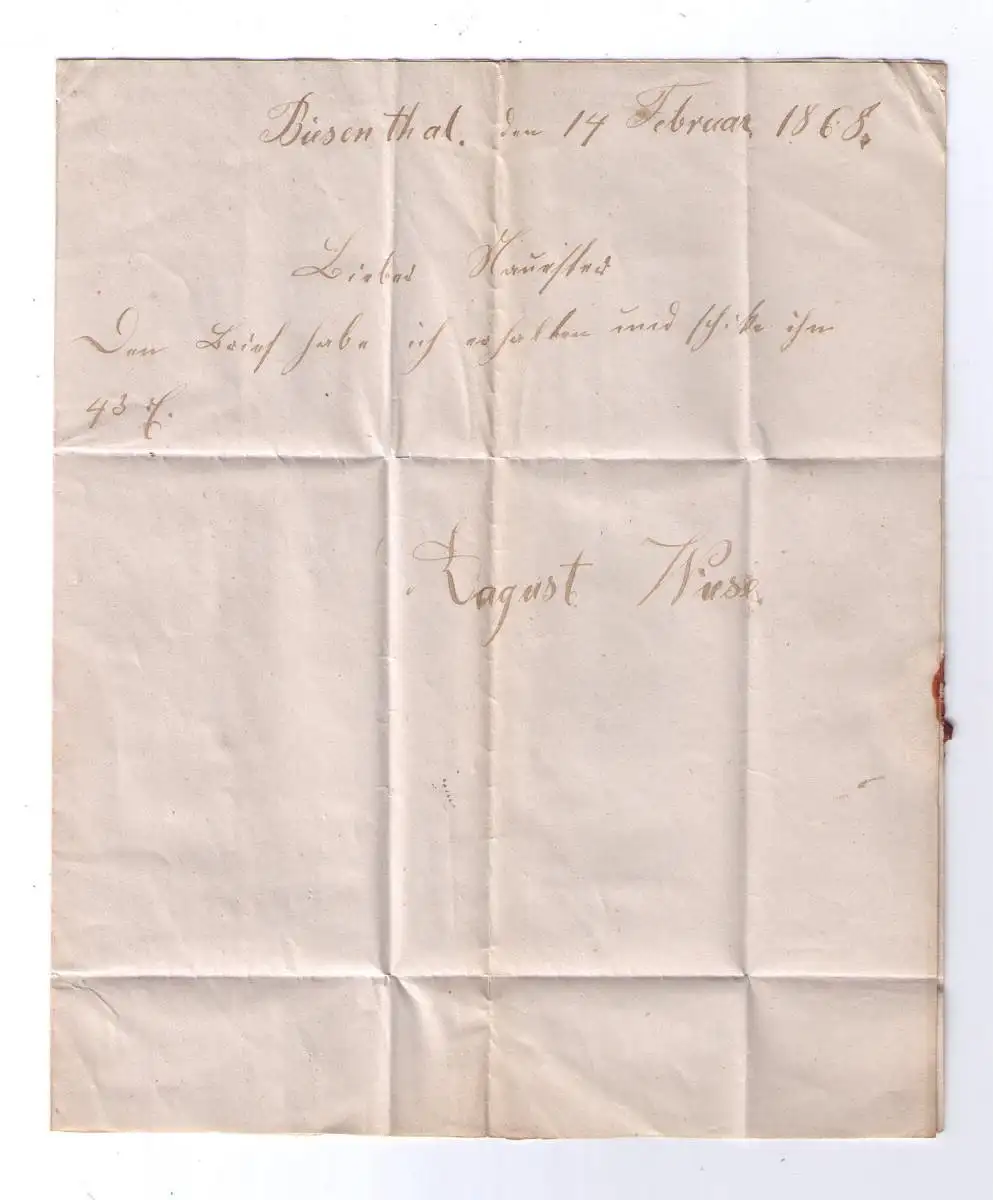 Biesenthal. den 14 Februar 1868.
Lieber
Den Brief habe ich erhalten und schike ihn
43
August Wiese